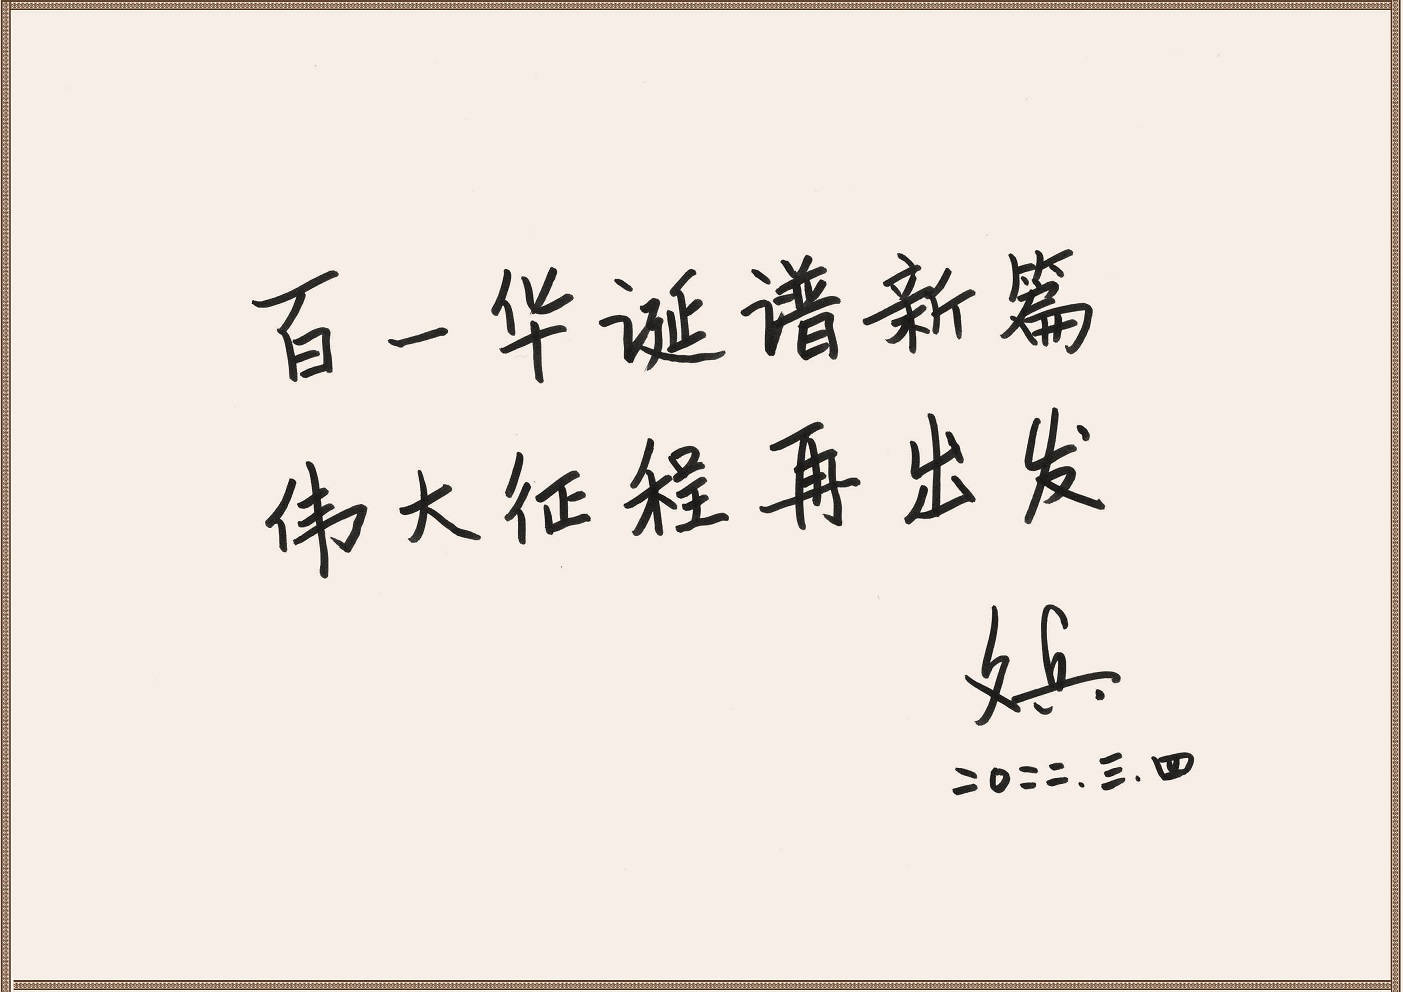 百一华诞谱新篇
伟大征程再出发
二〇二二.三.四